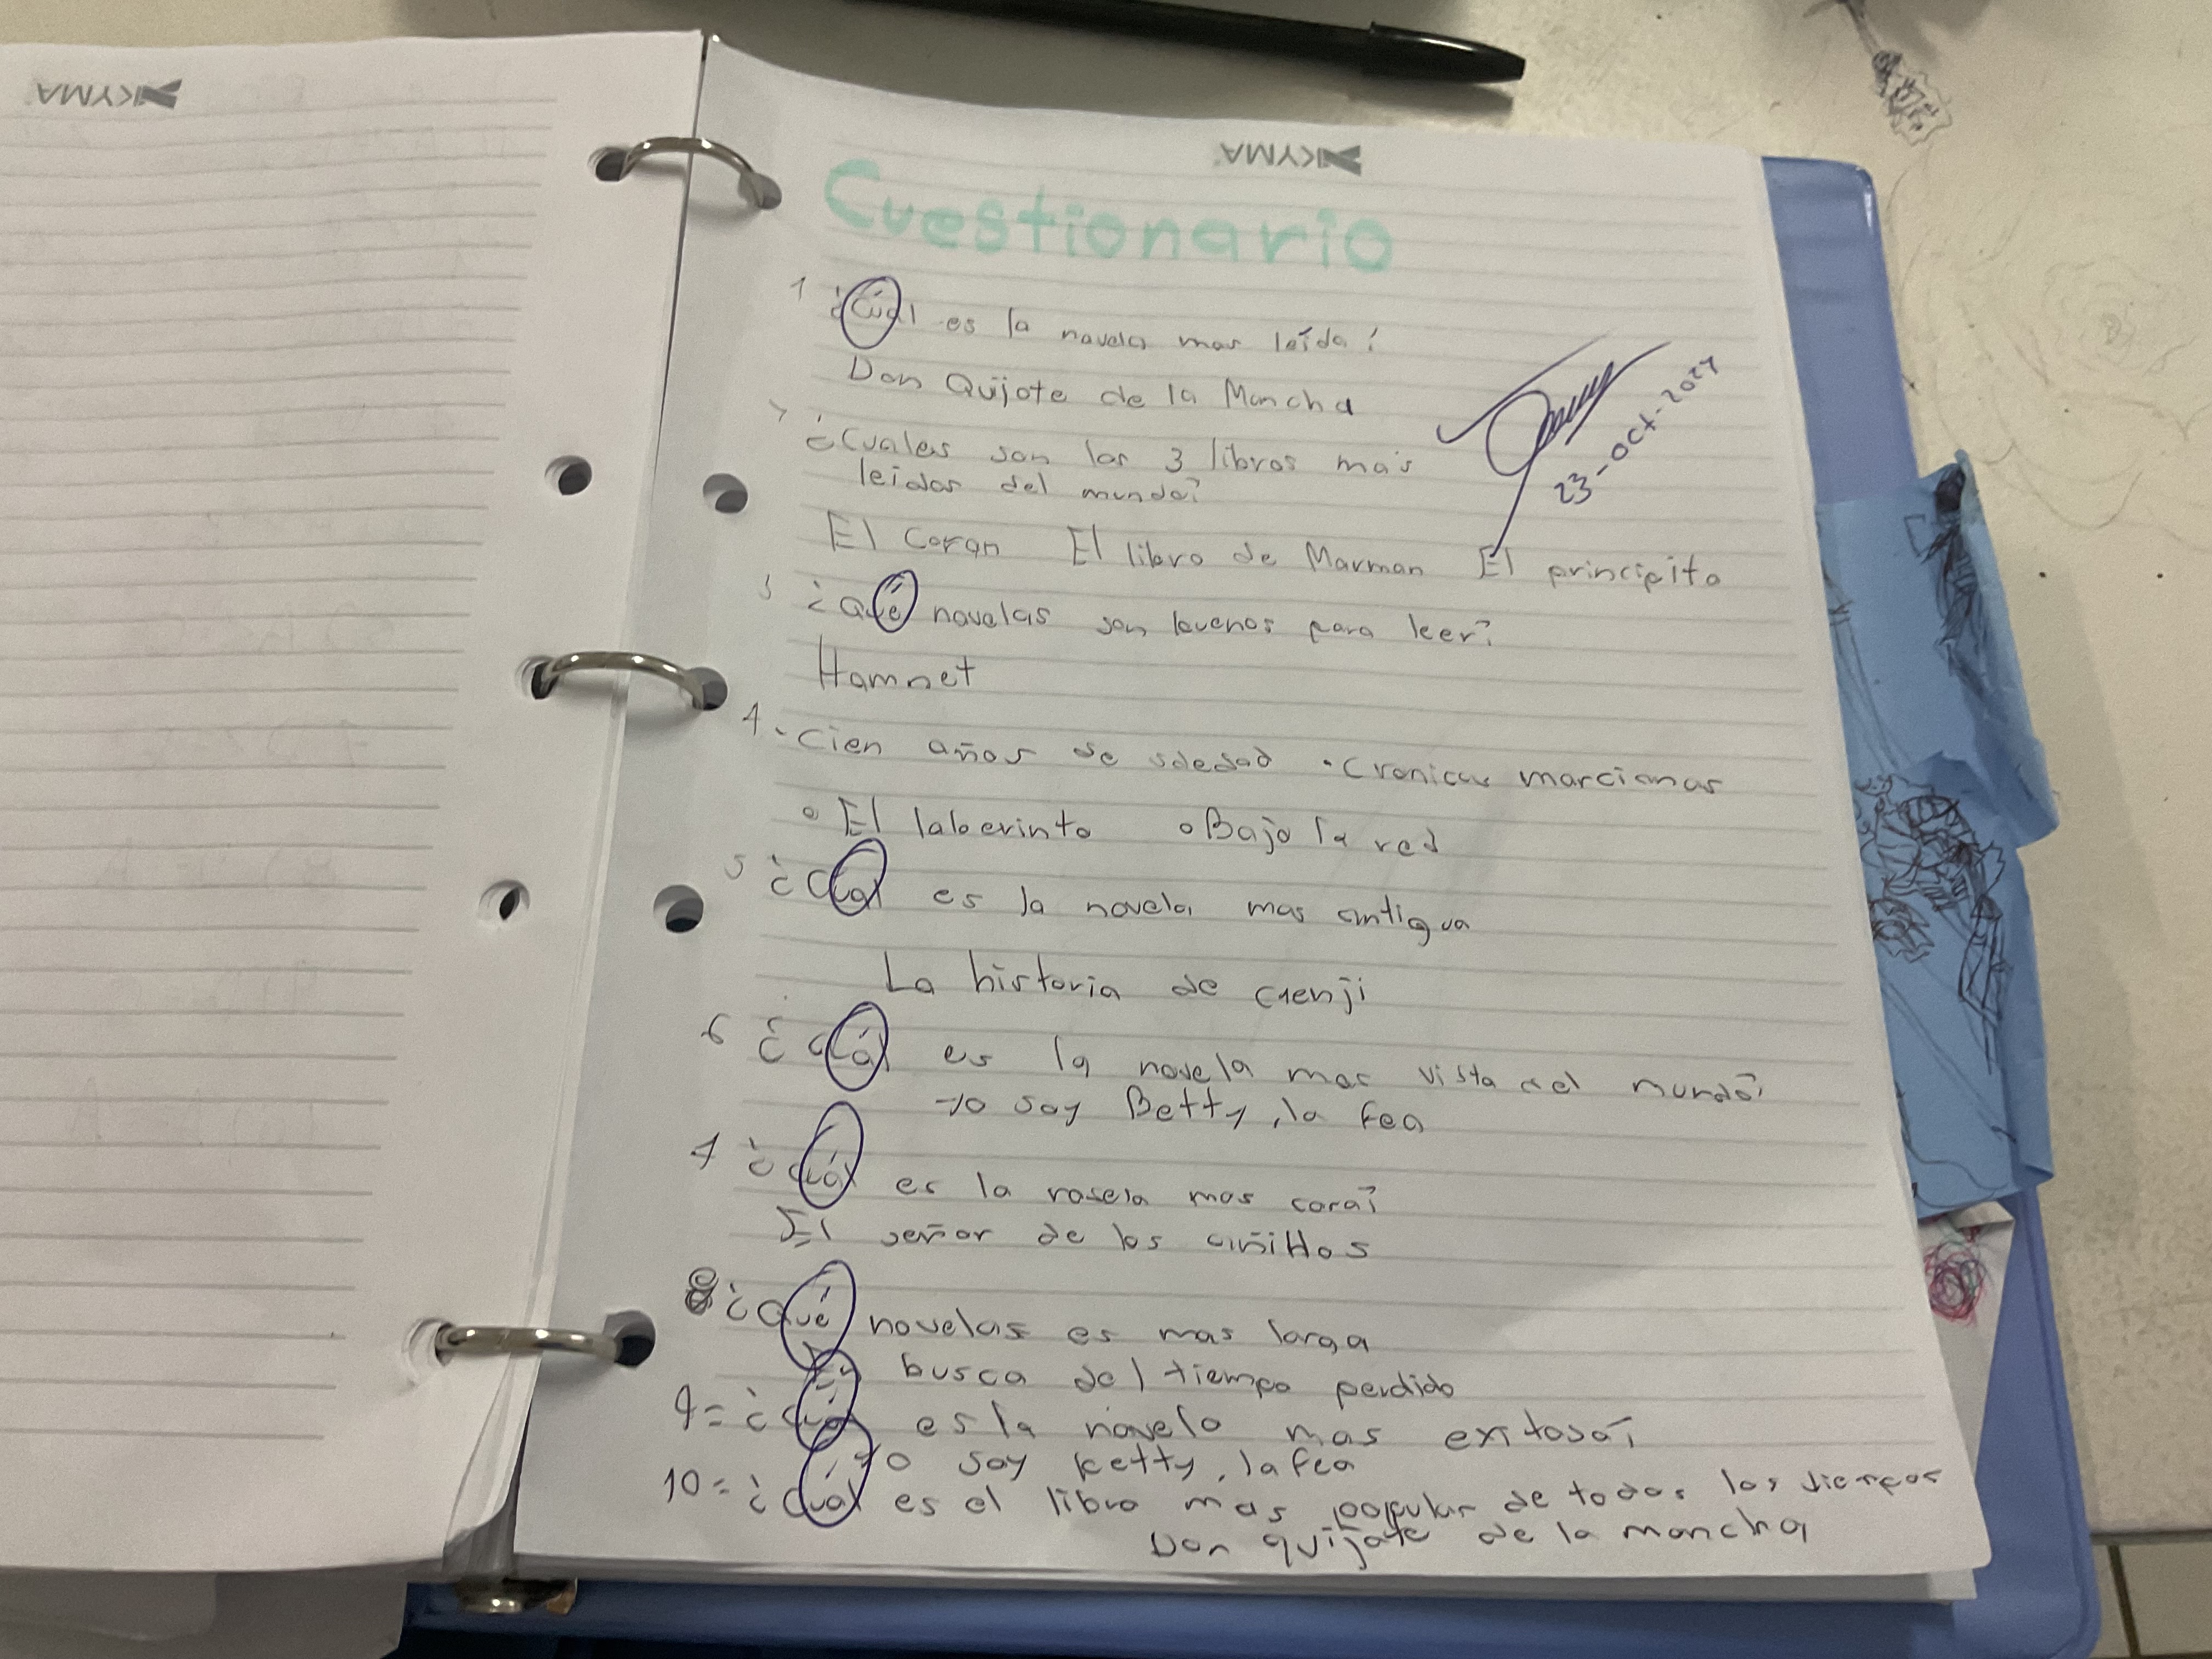 KYMA
KYMA
Cuestionario
1 ¿Cúal es la novela mas leída?
Don Quijote de la Mancha
23-Oct-2024
¿Cuales son los 3 libros más
leidos del mundo?
El Coran El libro de Marman El principito
3 ¿Qué novelas son buenos para leer?
Hamnet
4. Cien años de soledad • Cronicas marcianas
• El laberinto • Bajo la red
5 ¿Cúal es la novela mas antigua
La historia de Genji
6 ¿Cuál es la novela mas vista del mundo?
Yo soy Betty, la fea
7 ¿Cuál es la novela mas cara?
El señor de los aniHos
8 ¿Qué novelas es mas larga
En busca del tiempo perdido
9= ¿Cuál es la novela mas exitosa?
Yo soy ketty, la fea
10= ¿Cuál es el libro mas popular de todos los tiempos
Don quijote de la mancha